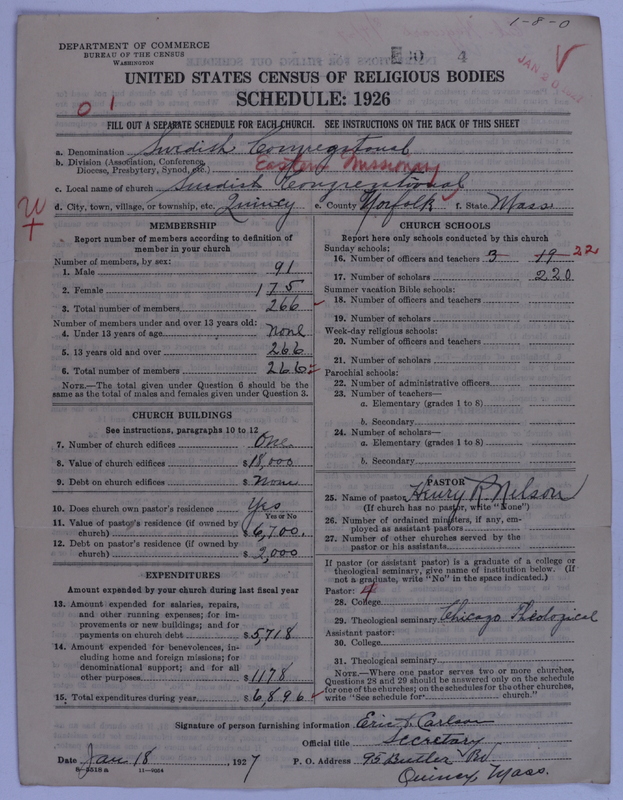 1-8-0
DEPARTMENT OF COMMERCE
BUREAU OF THE CENSUS
WASHINGTON
4
UNITED STATES CENSUS OF RELIGIOUS BODIES
SCHEDULE: 1926
0 1
FILL OUT A SEPARATE SCHEDULE FOR EACH CHURCH. SEE INSTRUCTIONS ON THE BACK OF THIS SHEET
a. Denomination Swedish Congregational
b. Division (Association, Conference, Diocese, Presbytery, Synod, etc.) Eastern Missionary
c. Local name of church Swedish Congregational
d. City, town, village, or township, etc. Quincy e. County Norfolk f. State Mass
MEMBERSHIP
Report number of members according to definition of
member in your church
Number of members, by sex:
1. Male 91
2. Female 175
3. Total number of members 266
Number of members under and over 13 years old:
4. Under 13 years of age None
5. 13 years old and over 266
6. Total number of members 266
NOTE.—The total given under Question 6 should be the
same as the total of males and females given under Question 3.
CHURCH BUILDINGS
See instructions, paragraphs 10 to 12
7. Number of church edifices One
8. Value of church edifices $18,000
9. Debt on church edifices $ None
10. Does church own pastor's residence Yes
Yes or No
11. Value of pastor's residence (if owned by
church) $6,700.
12. Debt on pastor's residence (if owned by
church) $2,000
EXPENDITURES
Amount expended by your church during last fiscal year
13. Amount expended for salaries, repairs,
and other running expenses; for im-
provements or new buildings; and for
payments on church debt $5,718
14. Amount expended for benevolences, in-
cluding home and foreign missions; for
denominational support; and for all
other purposes $1178
15. Total expenditures during year $6,896
CHURCH SCHOOLS
Report here only schools conducted by this church
Sunday schools:
16. Number of officers and teachers 3 19 22
17. Number of scholars 220
Summer vacation Bible schools:
18. Number of officers and teachers
19. Number of scholars
Week-day religious schools:
20. Number of officers and teachers
21. Number of scholars
Parochial schools:
22. Number of administrative officers
23. Number of teachers—
a. Elementary (grades 1 to 8)
b. Secondary
24. Number of scholars—
a. Elementary (grades 1 to 8)
b. Secondary
PASTOR
25. Name of pastor Henry R. Nelson
(If church has no pastor, write "None")
26. Number of ordained ministers, if any, em-
ployed as assistant pastors
27. Number of other churches served by the
pastor or his assistants
If pastor (or assistant pastor) is a graduate of a college or
theological seminary, give name of institution below. (If
not a graduate, write "No" in the space indicated.)
Pastor: 4
28. College
29. Theological seminary Chicago Theological
Assistant pastor:
30. College
31. Theological seminary
NOTE.—Where one pastor serves two or more churches,
Questions 28 and 29 should be answered only on the schedule
for one of the churches; on the schedules for the other churches,
write "See schedule for church."
Signature of person furnishing information Eric J. Carlson
Official title Secretary
Date Jan 18, 1927 P. O. Address 95 Butler Rd
8-5518a 11-9064 Quincy Mass.